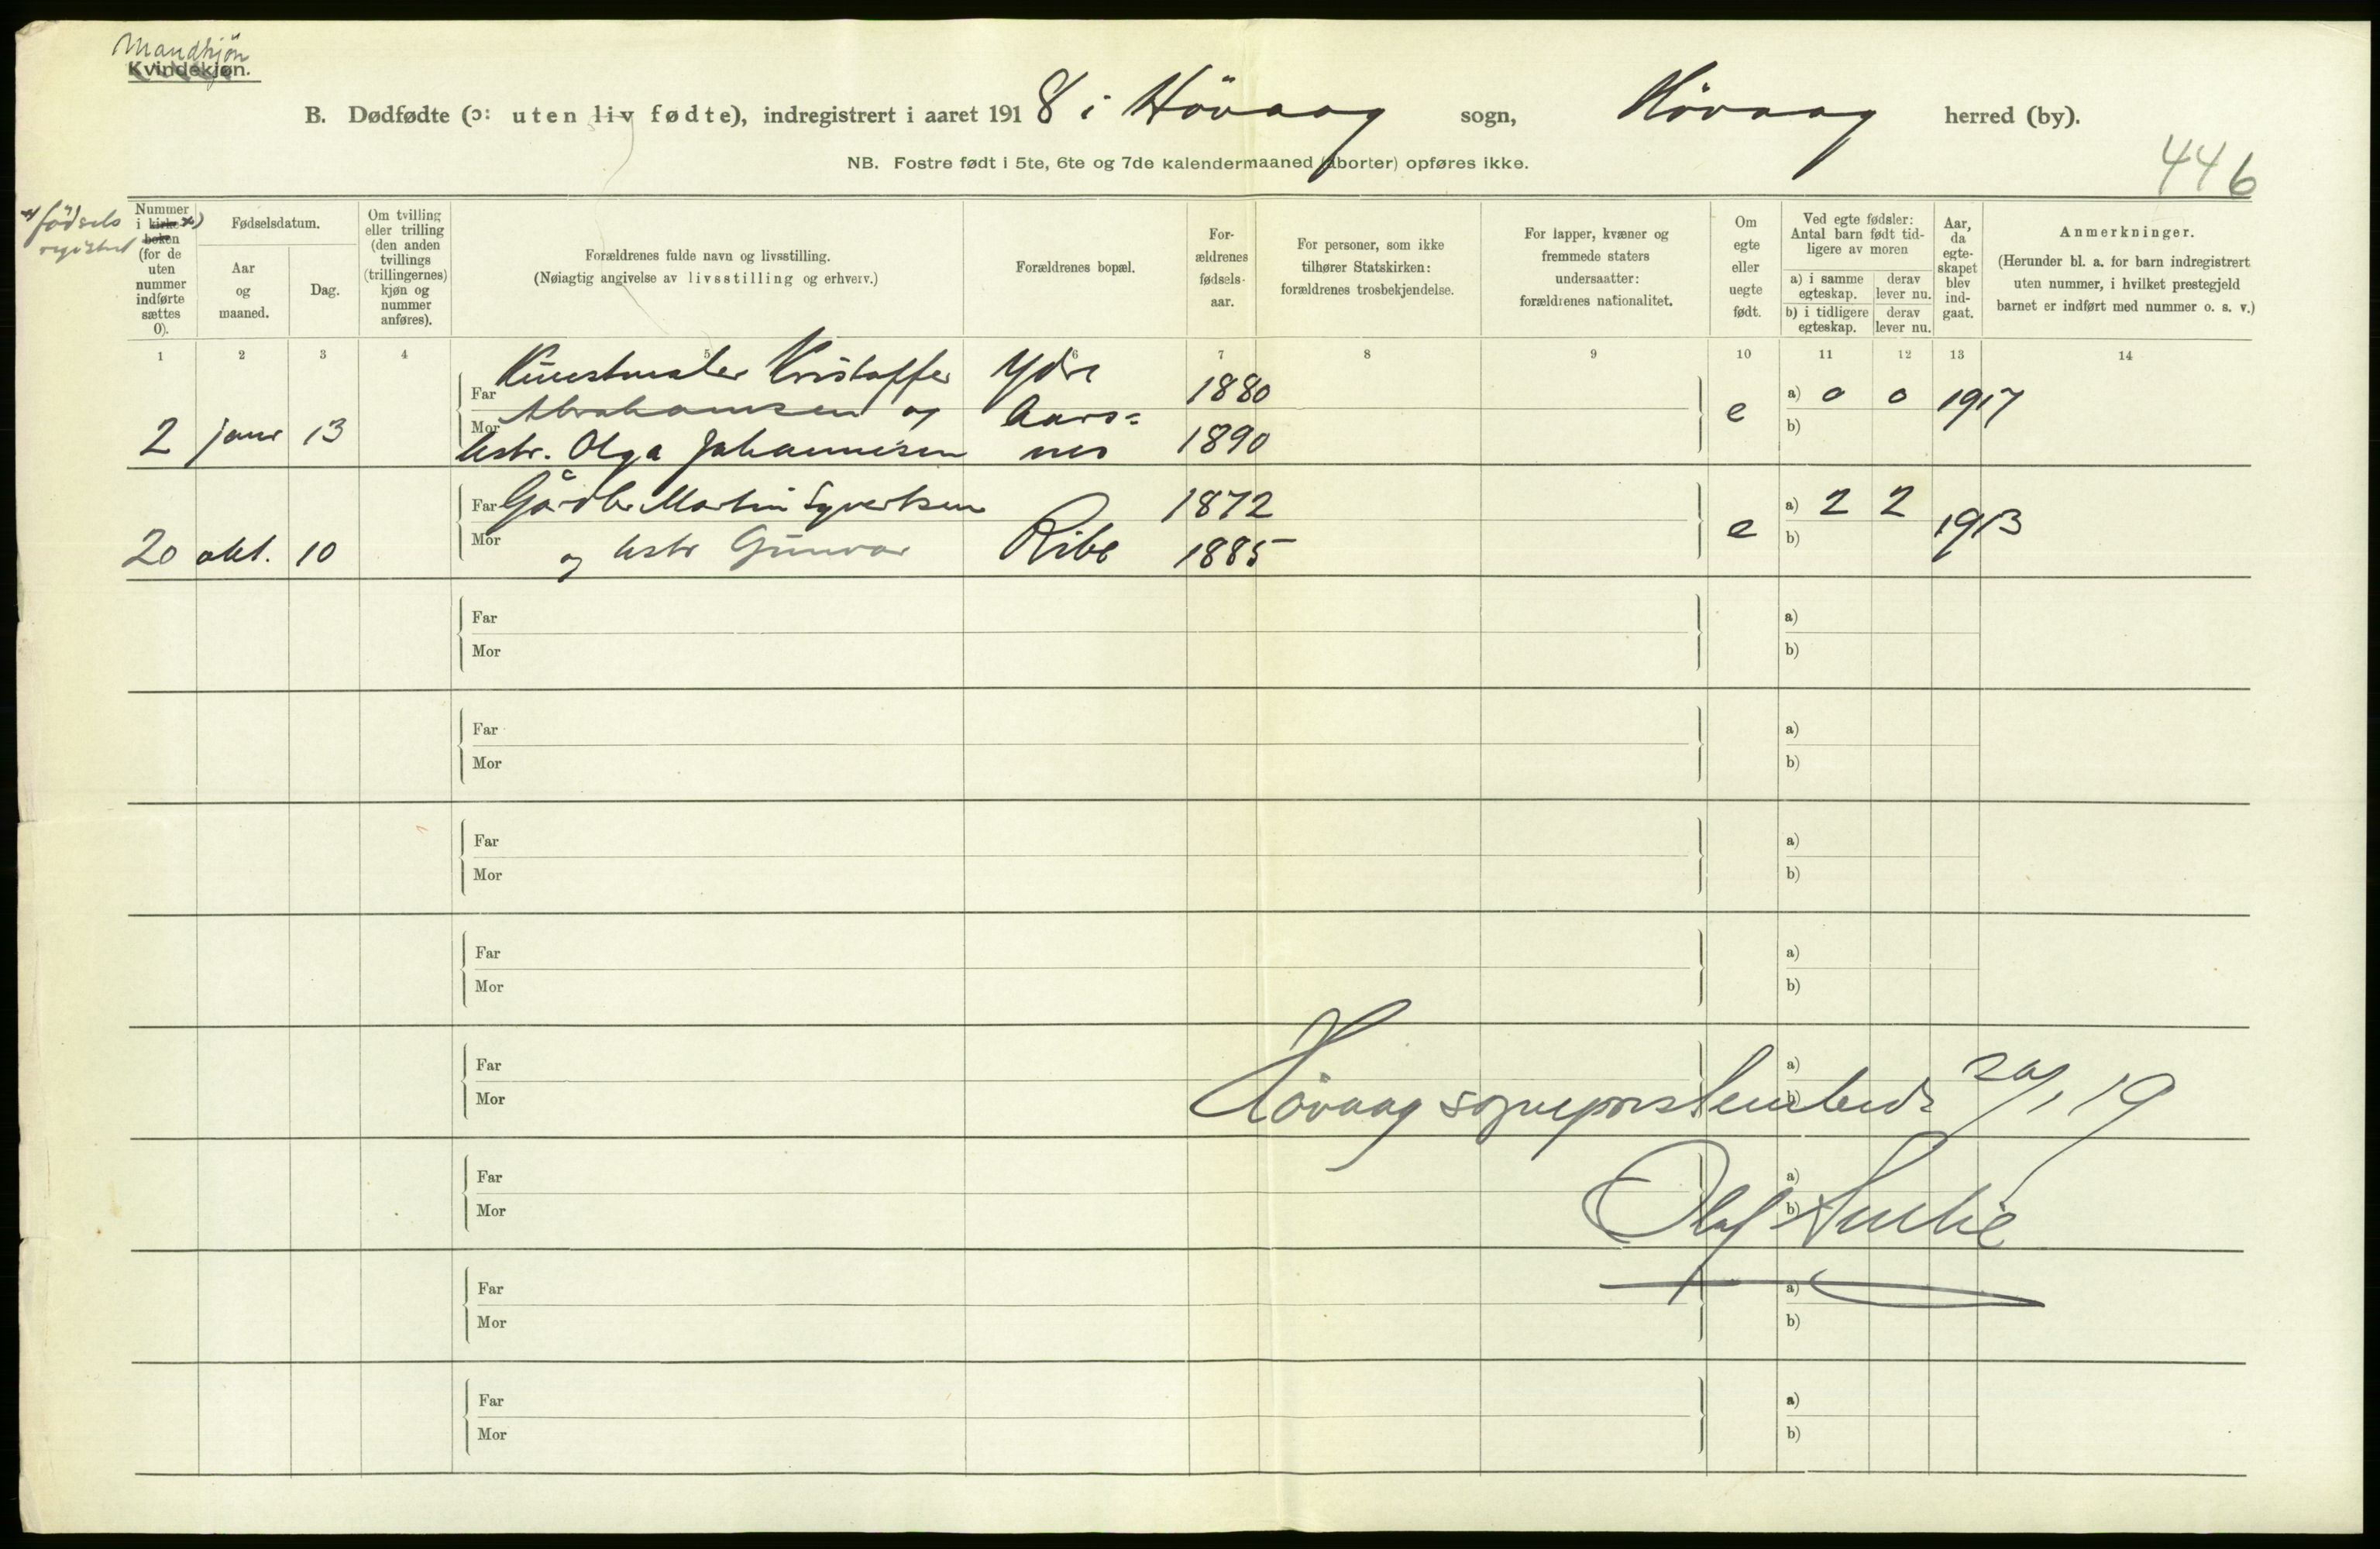 Mandkjön
Kvindekjøn.
B. Dødfødte (ɔ: uten liv fødte), indregistrert i aaret 1918 i Hövaag sogn, Hövaag herred (by).
NB. Fostre født i 5te, 6te og 7de kalendermaaned (aborter) opføres ikke.
446
x) födsels
registret
Nummer i kirkeboken x) (for de uten nummer indførte sættes 0).
Fødselsdatum.
Aar og maaned.
Dag.
Om tvilling eller trilling (den anden tvillings (trillingernes) kjøn og nummer anføres).
Forældrenes fulde navn og livsstilling.
(Nøiagtig angivelse av livsstilling og erhverv.)
Forældrenes bopæl.
For-ældrenes fødsels-aar.
For personer, som ikke tilhører Statskirken: forældrenes trosbekjendelse.
For lapper, kvæner og fremmede staters undersaatter: forældrenes nationalitet.
Om egte eller uegte født.
Ved egte fødsler: Antal barn født tid-ligere av moren
a) i samme egteskap. derav lever nu.
b) i tidligere egteskap. derav lever nu.
Aar, da egte-skapet blev ind-gaat.
Anmerkninger.
(Herunder bl. a. for barn indregistrert uten nummer, i hvilket prestegjeld barnet er indført med nummer o. s. v.)
1 2 3 4 5 6 7 8 9 10 11 12 13 14
Kunstmaler Kristoffer Ydre
Far Abrahamsen og Aars= 1880 a) 0 0 1917
2 janr 13 Mor hstr. Olga Johannesen nes 1890 e b)
Far Gårdbr Martin Syvertsen 1872 a) 2 2 1913
20 okt. 10 Mor og hstr Gunvor Ribe 1885 e b)
Far a)
Mor b)
Far a)
Mor b)
Far a)
Mor b)
Far a)
Mor b)
Far a)
Mor b)
Hövaag sogneprestembede 20/1 19
Far a)
Mor b)
Olaf
Far a)
Mor b)
Far a)
Mor b)